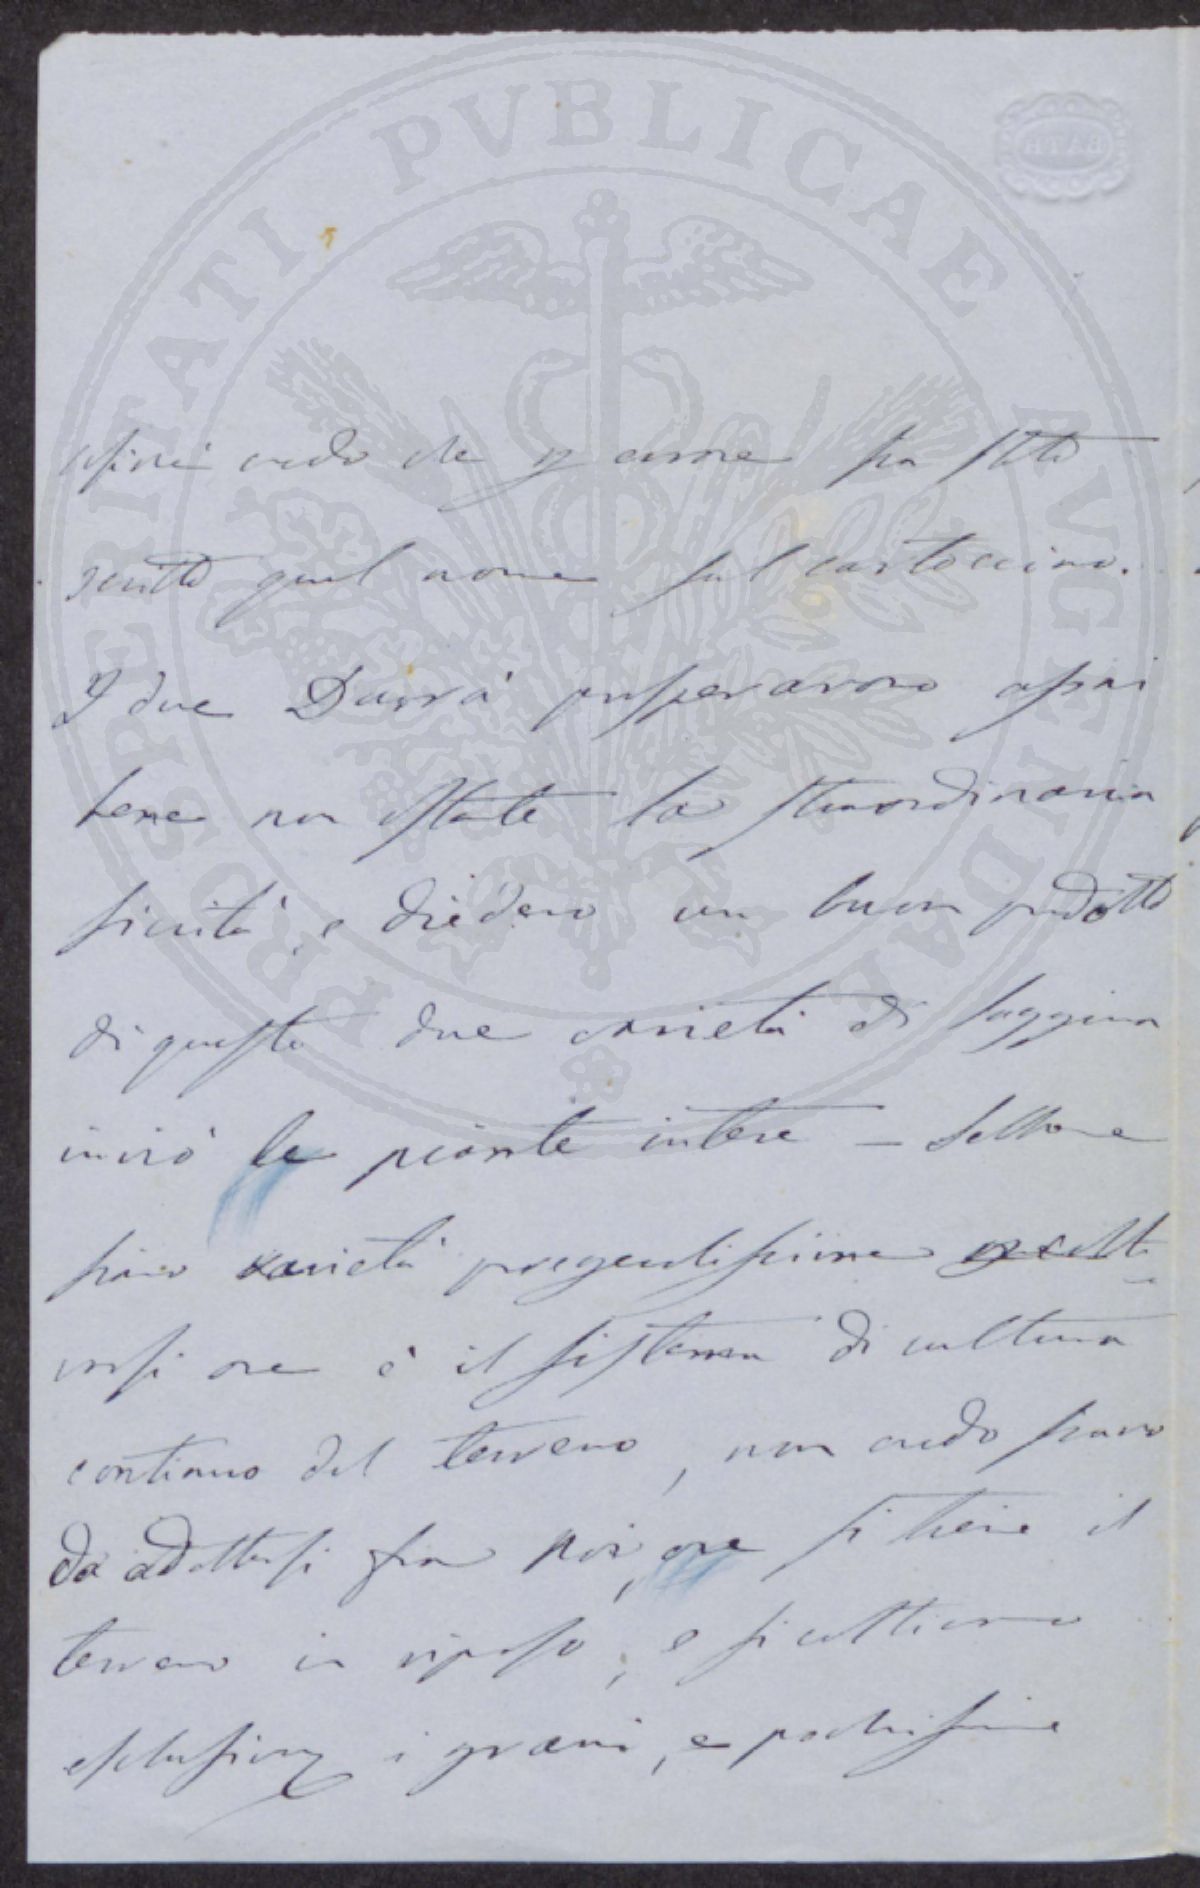 PROSPERITATI PVBLICAE AVGENDAE
BATH
credo che sia stato
scritto quel nome sul cartoccino.
I due Durrà prosperarono assai
bene non ostante la straordinaria
siccità, e diedero un buon prodotto
di queste due varietà di saggina
inviò le piante intere – Sebbene
siano varietà pregevolissime
ove è il sistema di cultura
continuo del terreno, non credo siano
da adottarsi fra noi, ove si tiene il
terreno in riposo, e si coltivano
i grani, e pochissime